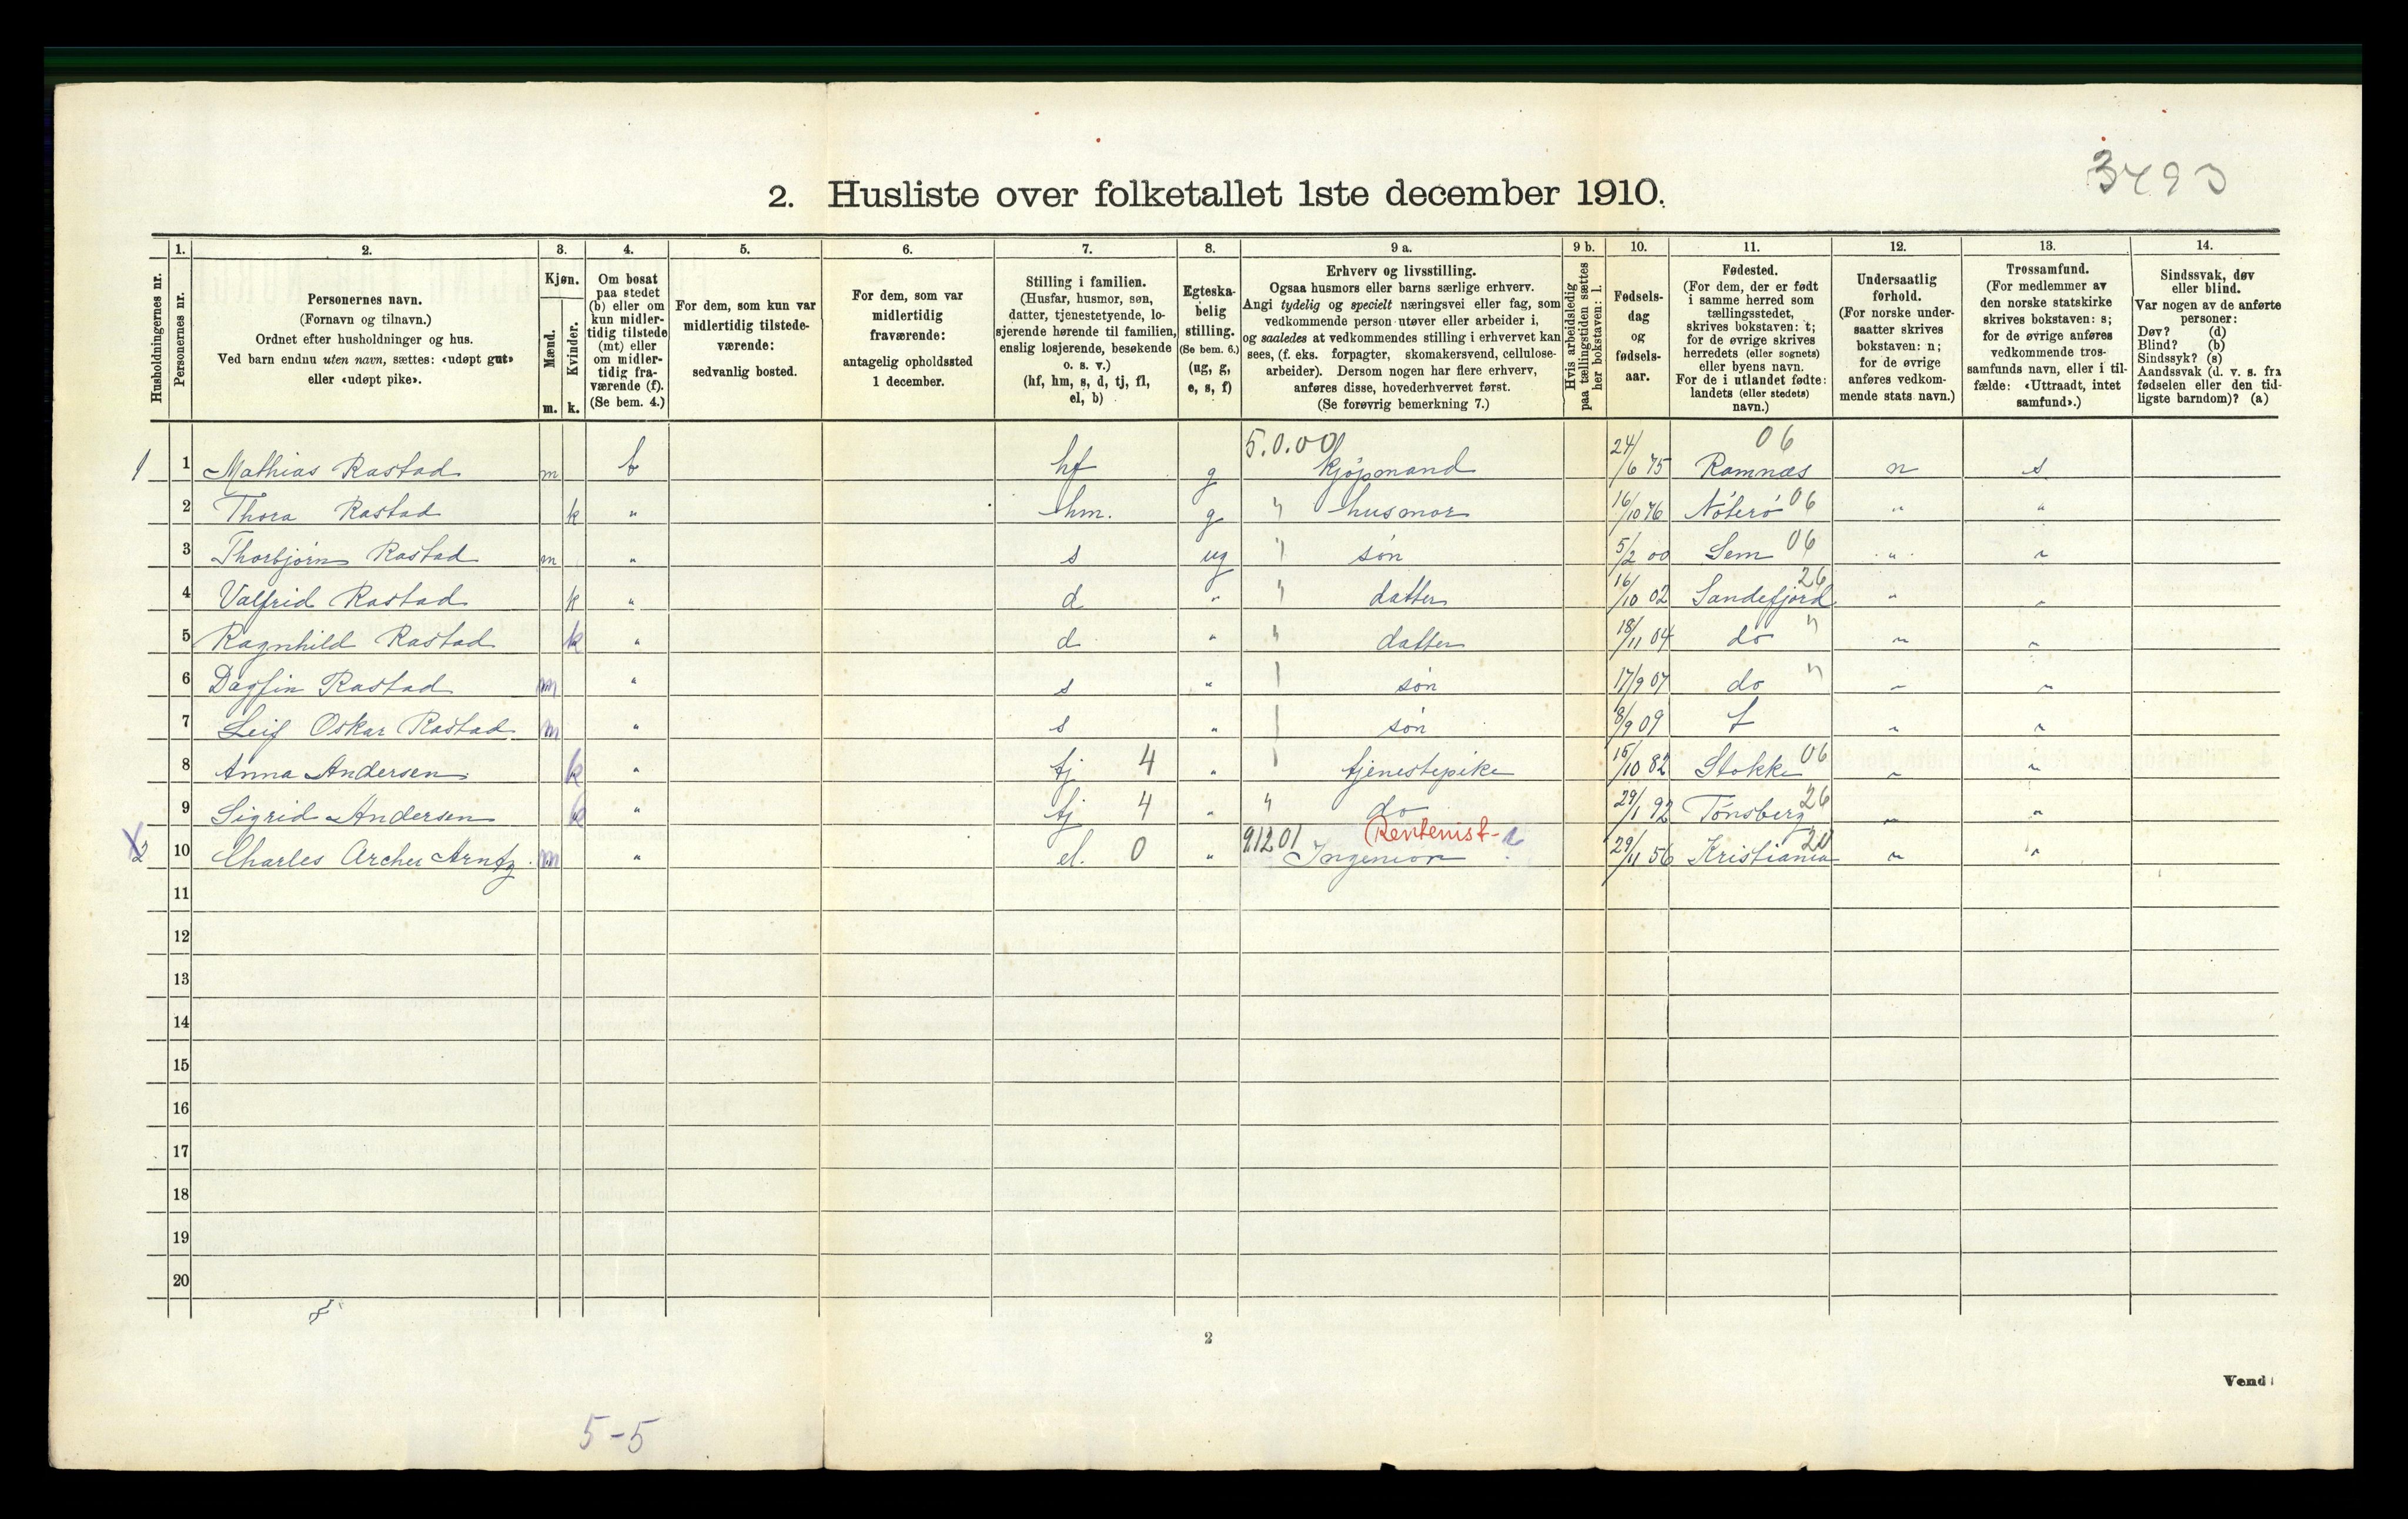 3493
2. Husliste over folketallet 1ste december 1910.
Husholdningernes nr.
1.
Personernes nr.
2.
Personernes navn.
(Fornavn og tilnavn.)
Ordnet efter husholdninger og hus.
Ved barn endnu uten navn, sættes: «udøpt gut»
eller «udøpt pike».
3.
Kjøn.
Mænd.
Kvinder.
m. k.
4.
Om bosat
paa stedet
(b) eller om
kun midler-
tidig tilstede
(mt) eller
om midler-
tidig fra-
værende (f).
(Se bem. 4.)
5.
For dem, som kun var
midlertidig tilstede-
værende:
sedvanlig bosted.
6.
For dem, som var
midlertidig
fraværende:
antagelig opholdssted
1 december.
7.
Stilling i familien.
(Husfar, husmor, søn,
datter, tjenestetyende, lo-
sjerende hørende til familien,
enslig losjerende, besøkende
o. s. v.)
(hf, hm, s, d, tj, fl,
el, b)
8.
Egteska-
belig
stilling.
(Se bem. 6.)
(ug, g,
e, s, f)
9 a.
Erhverv og livsstilling.
Ogsaa husmors eller barns særlige erhverv.
Angi tydelig og specielt næringsvei eller fag, som
vedkommende person utøver eller arbeider i,
og saaledes at vedkommendes stilling i erhvervet kan
sees, (f. eks. forpagter, skomakersvend, cellulose-
arbeider). Dersom nogen har flere erhverv,
anføres disse, hovederhvervet først.
(Se forøvrig bemerkning 7.)
9 b.
Hvis arbeidsledig
paa tællingstiden sættes
her bokstaven: l.
10.
Fødsels-
dag
og
fødsels-
aar.
11.
Fødested.
(For dem, der er født
i samme herred som
tællingsstedet,
skrives bokstaven: t;
for de øvrige skrives
herredets (eller sognets)
eller byens navn.
For de i utlandet fødte:
landets (eller stedets)
navn.)
12.
Undersaatlig
forhold.
(For norske under-
saatter skrives
bokstaven: n;
for de øvrige
anføres vedkom-
mende stats navn.)
13.
Trossamfund.
(For medlemmer av
den norske statskirke
skrives bokstaven: s;
for de øvrige anføres
vedkommende tros-
samfunds navn, eller i til-
fælde: «Uttraadt, intet
samfund».)
14.
Sindssvak, døv
eller blind.
Var nogen av de anførte
personer:
Døv? (d)
Blind? (b)
Sindssyk? (s)
Aandssvak (d. v. s. fra
fødselen eller den tid-
ligste barndom)? (a)
1 1 Mathias Rastad m b hf g 5.0.00 Kjøpmand 24/6 75 Ramnæs 06 n s
2 Thora Rastad k " hm. g " husmor 16/10 76 Nøterø 06 " "
3 Thorbjørn Rastad m " s ug " søn 5/2 00 Sem 06 " "
4 Valfrid Rastad k " d " " datter 16/10 02 Sandefjord 26 " "
5 Ragnhild Rastad k " d " " datter 18/11 04 do " " "
6 Dagfin Rastad m " s " " søn 17/9 07 do " " "
7 Leif Oskar Rastad m " s " " søn 8/9 09 t " "
8 Anna Andersen k " tj 4 " " tjenestepike 15/10 82 Stokke 06 " "
9 Sigrid Andersen k " tj 4 " " do 29/1 92 Tønsberg 26 " "
2 10 Charles Archer Arntz m " el. 0 " 91201 Rentenist- Ingeniør 29/11 56 Kristiania 20 " "
11
12
13
14
15
16
17
18
19
20
2
Vend
5-5